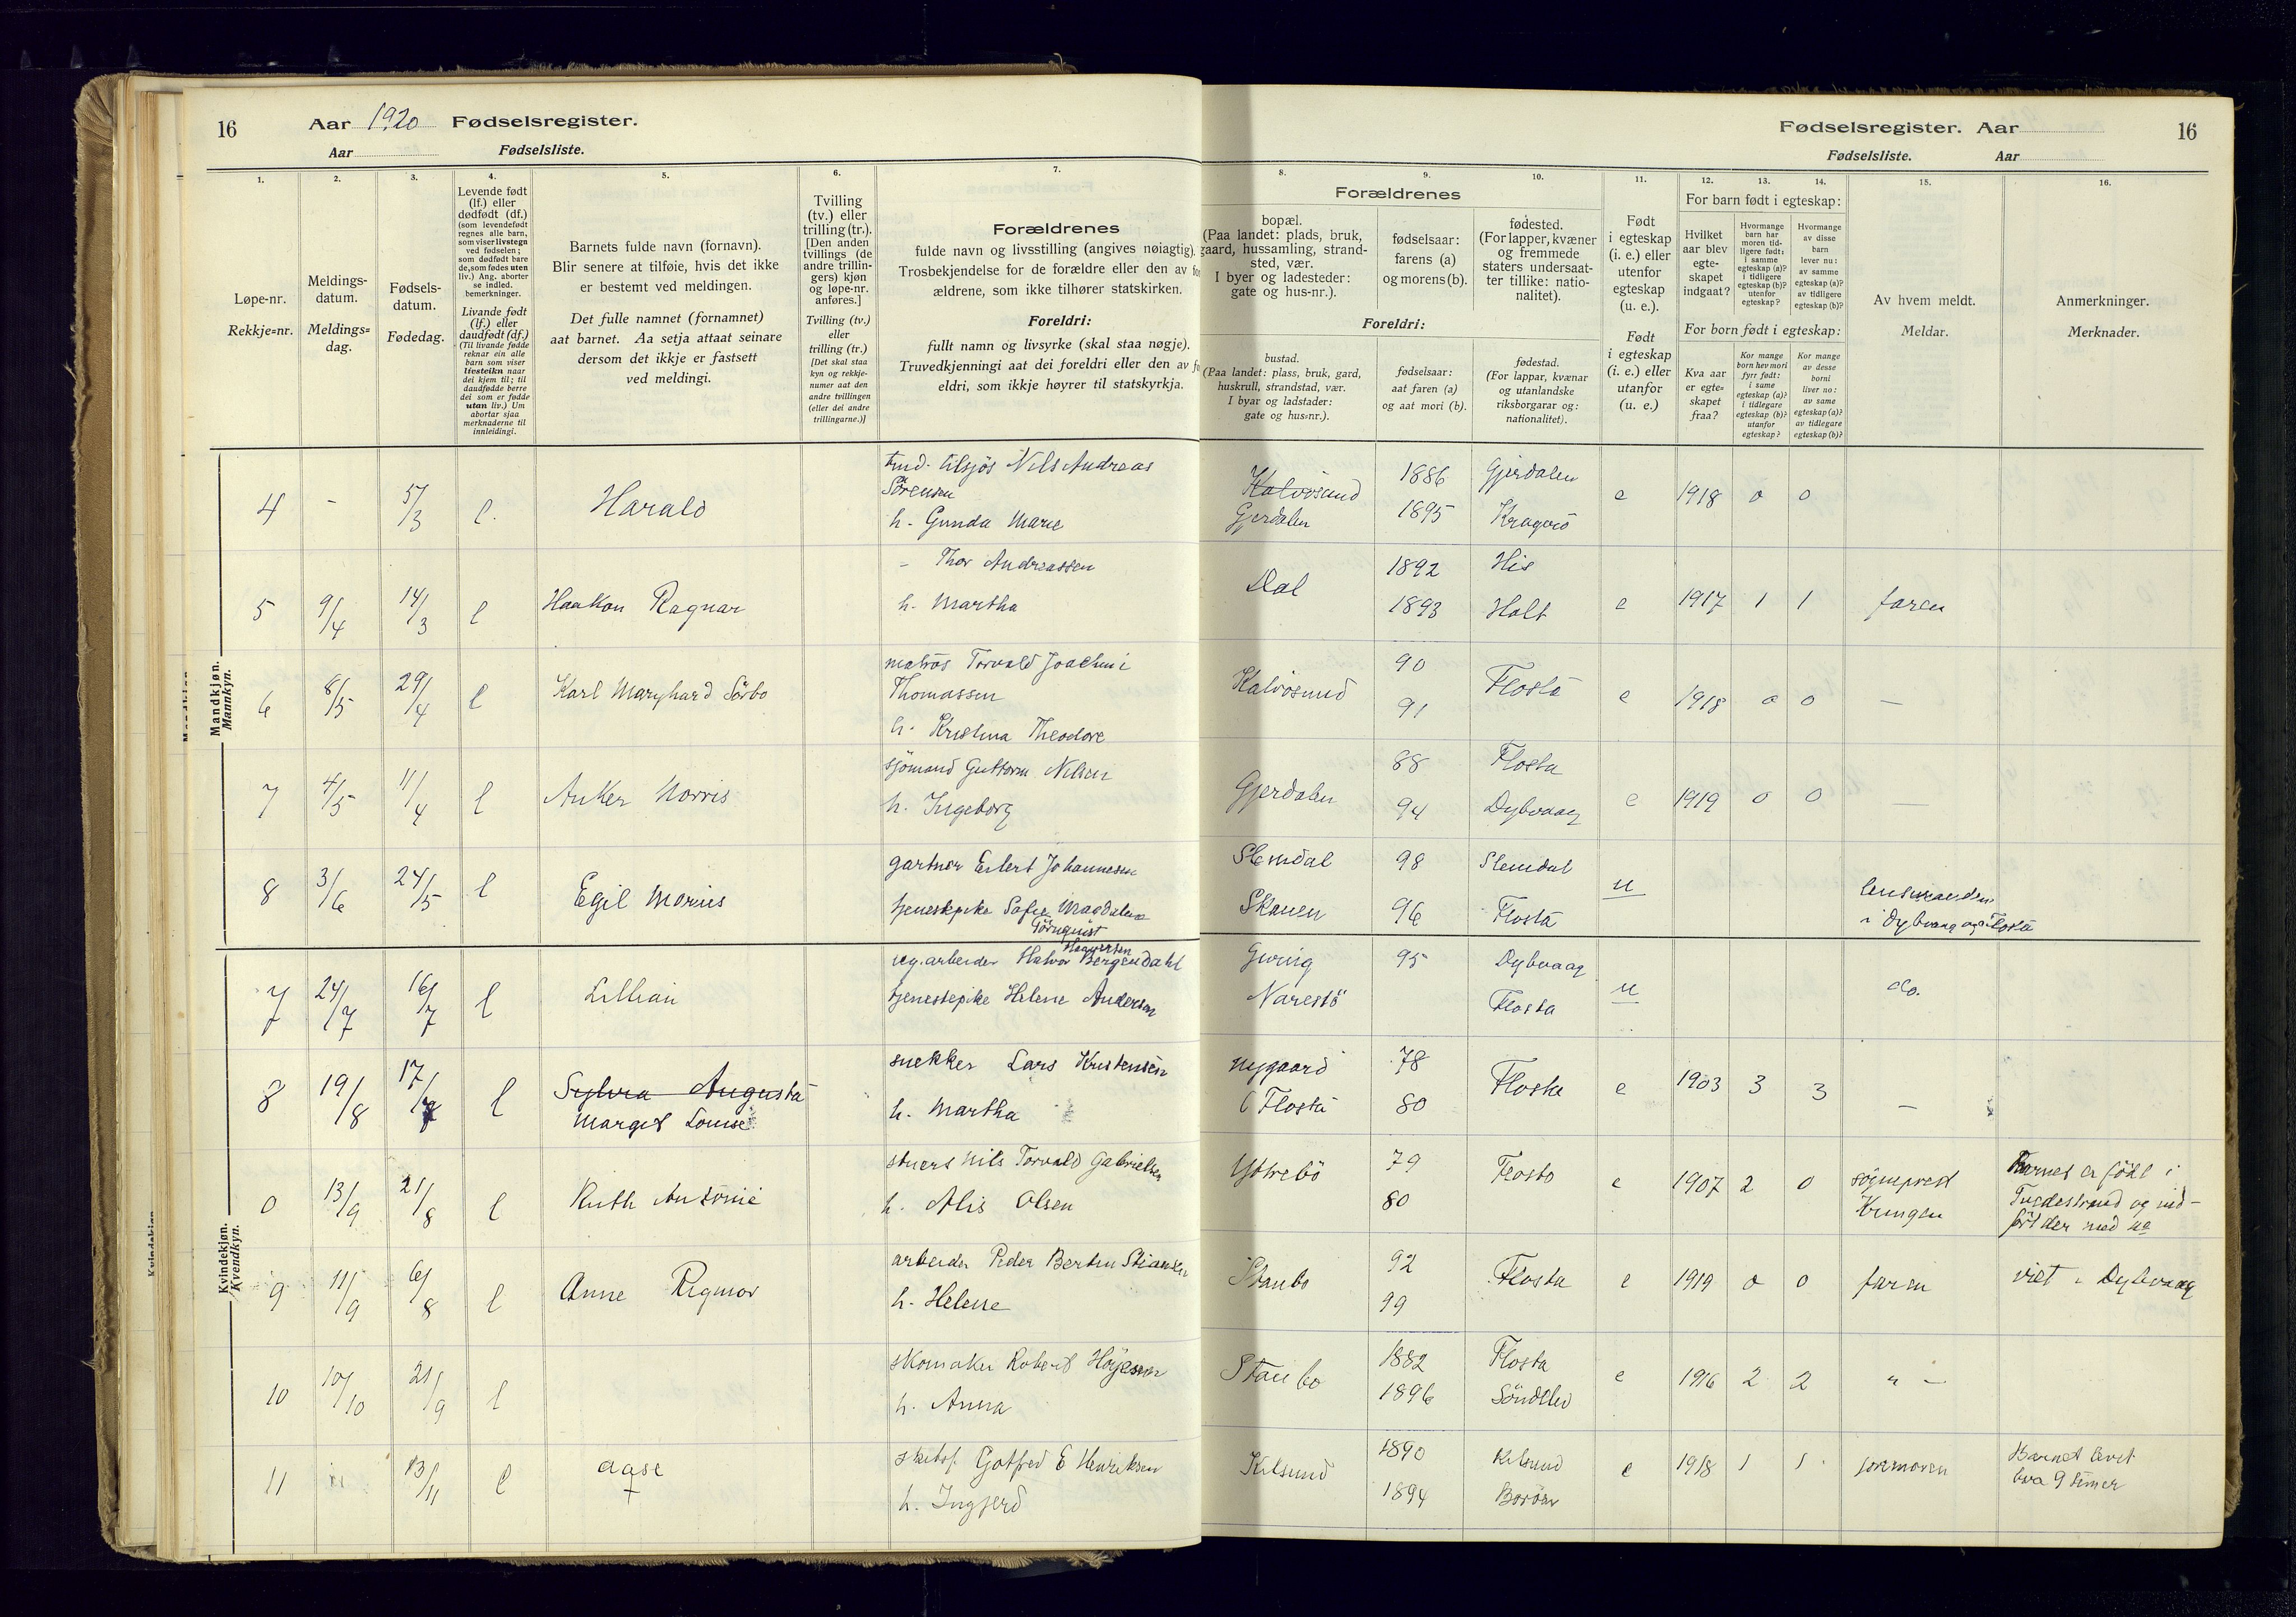 16
Aar 1920 Fødselsregister.
Aar Fødselsliste.
Fødselsregister. Aar
16
Fødselsliste. Aar
1.
2.
3.
4.
5.
6.
7.
8.
9.
10.
11.
12.
13.
14.
15.
16.
Løpe-nr.
Rekkje=nr.
Meldings-
datum.
Meldings=
dag.
Fødsels-
datum.
Fødedag.
Levende født
(lf.) eller
dødfødt (df.)
(som levendefødt
regnes alle barn,
som viser livstegn
ved fødselen;
som dødfødt bare
de, som fødes uten
liv.) Ang. aborter
se indled.
bemerkninger.
Livande født
(lf.) eller
daudfødt (df.)
(Til livande fødde
reknar ein alle
barn som viser
livsteikn naar
dei kjem til; til
daudfødde berre
dei som er fødde
utan liv.) Um
abortar sjaa
merknaderne til
innleidingi.
Barnets fulde navn (fornavn).
Blir senere at tilføie, hvis det ikke
er bestemt ved meldingen.
Det fulle namnet (fornamnet)
aat barnet. Aa setja attaat seinare
dersom det ikkje er fastsett
ved meldingi.
Tvilling
(tv.) eller
trilling (tr.).
[Den anden
tvillings (de
andre trillin-
gers) kjøn
og løpe-nr.
anføres.]
Tvilling (tv.)
eller
trilling (tr.)
[Det skal staa
kyn og rekkje-
numer aat den
andre tvillingen
(eller dei andre
trillingarne.)]
Forældrenes
fulde navn og livsstilling (angives nøiagtig).
Trosbekjendelse for de forældre eller den av
ældrene, som ikke tilhører statskirken.
Foreldri:
fullt namn og livsyrke (skal staa nøgje).
Truvedkjenningi aat dei foreldri eller den av
eldri, som ikkje høyrer til statskyrkja.
Forældrenes
bopæl.
(Paa landet: plads, bruk,
gaard, hussamling, strand-
sted, vær.
I byer og ladesteder:
gate og hus-nr.).
fødselsaar:
farens (a)
og morens (b).
fødested.
(For lapper, kvæner
og fremmede
staters undersaat-
ter tillike: natio-
nalitet).
Foreldri:
bustad.
(Paa landet: plass, bruk, gard,
huskrull, strandstad, vær.
I byar og ladstader:
gate og hus=nr.).
fødselsaar:
aat faren (a)
og aat mori (b).
fødestad.
(For lappar, kvænar
og utanlandske
riksborgarar og:
nationalitet).
Født
i egteskap
(i. e.) eller
utenfor
egteskap
(u. e.).
Født
i egteskap
(i. e.) eller
utanfor
(u. e.)
For barn født i egteskap:
Hvilket
aar blev
egte-
skapet
indgaat?
Hvormange
barn har
moren tid-
ligere født:
i samme
egteskap (a)?
i tidligere
egteskap (b)?
utenfor
egteskap?
Hvormange
av disse
barn
lever nu:
av samme
egteskap (a)?
av tidligere
egteskap (b)?
For born født i egteskap:
Kva aar
er egte=
skapet
fraa?
Kor mange
born hev mori
fyrr født:
i same
egteskap (a)?
i tidlegare
egteskap (b)?
utanfor
egteskap?
Kor mange
av desse
borni
liver no:
av same
egteskap (a)?
av tidlegare
egteskap (b)?
Av hvem meldt.
Meldar.
Anmerkninger.
Merknader.
Mandkjøn.
Mannkyn.
4 - 5/3 l. Harald
Nils Andreas
Sørensen
h. Gunda Marie
Kalvøsund
Gjerdalen
1886 Gjerdalen
1895 Kragerö
e 1918 0 0
5 9/4 14/3 l Haakon Ragnar
- Thor Andreassen
h. Martha
Dal 1892 His
1893 Holt
e 1917 1 1 faren
6 8/5 29/4 l Karl Maryhard Sörbo
matros Torvald Joachim
Thomassen
h. Kristina Theodore
Kalvösund 90
91 Flosta
e 1918 0 0 -
7 4/5 11/4 l Anker Norris
sjömand Guttorm Nilsen
h. Ingeborg
Gjerdalen 88 Flosta
94 Dybvaag
e 1919 0 0 -
8 3/6 24/5 l Egil Marius
gartner Eilert Johannesen
tjenestepike Sofie Magdalene
Törnquist
Stemdal 98 Stemdal
Skauen 96 Flosta
u
lensmanden
i Dybvaag og Flosta
Kvindekjøn.
Kvendkyn.
7 24/7 16/7 l Lillian
arbeider Halvor Bergendahl
tjenestepike Helene Andersen
Gjeving 95 Dybvaag
Narestö Flosta
u do.
8 19/8 17/7 l Sylvia Augusta
Margit Louise
snekker Lars Kristensen
h. Martha
Nygaard 78
Flosta 80
Flosta e 1903 3 3 -
0 13/9 21/8 l Ruth Antonie
stuert Nils Torvald Gabrielsen
h. Alis Olsen
Ytrebö 79 Flosta
80
e 1907 2 0 sogneprest
Barnet er födt i
Tvedestrand og ind-
fört der med no
9 11/9 6/8 l Anne Rigmor
arbeider Peder Bertin Stiansen
h. Helene
Staubo 92
99 Flosta
e 1919 0 0 faren
viet i Dybvaag
10 10/10 21/9 l
skomaker Robert Höyesen
h. Anna
Staubo 1882 Flosta
1896 Söndeled
e 1916 2 2 " -
11 13/11 l Aase
†
Gotfred E Henriksen
h. Ingjerd
Kilsund 1890 Kilsund
1894 Borøen
e 1918 1 1 jormoren
Barnet levet
bra 9 timer